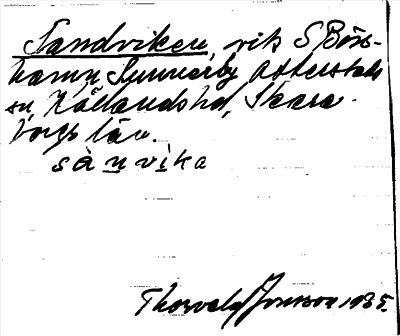 Sandviken, vik S Börs-
hamn, Sunnerby, Otterstads
sn, Kållandshd, Skara-
borgs län.
sànvika
Thorvald Jonsson 1935.